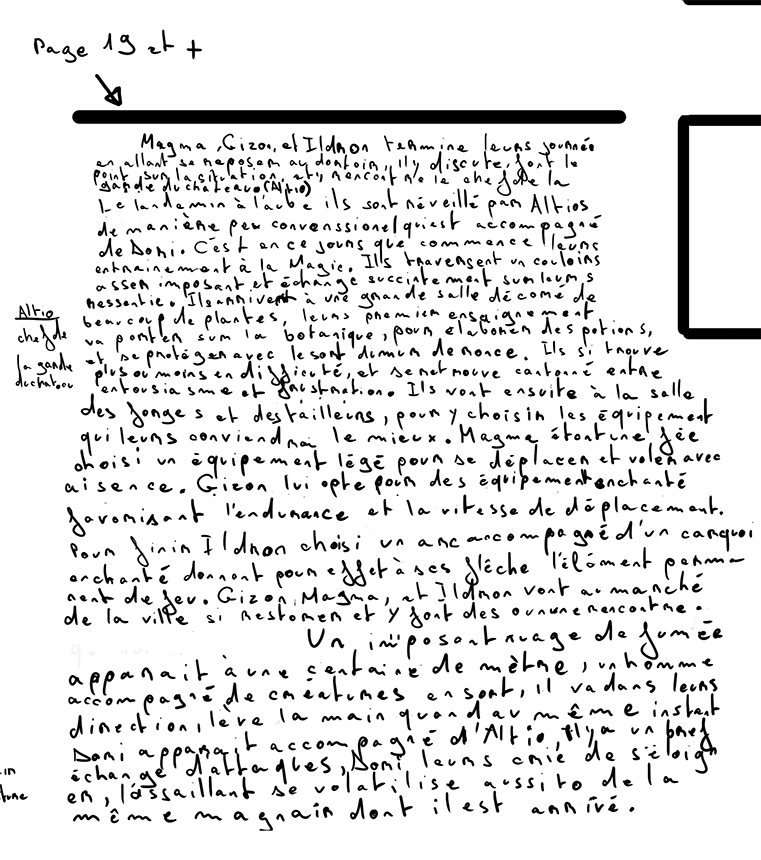 Page 19 et +
Magma, Gizon, et Ildron termine leurs journée
en allant se reposer au dortoir, ily discute, font le
point sur la situation, et y rencontre le chef de la
garde du chateau (Altio)
Le landemin à l'aube ils sont réveillé par Altios
de manière peu convenssionel qui est accompagné
de Dori. C'est en ce jours que commence leurs
entrainement à la Magie. Ils traversent un couloirs
assez imposant et échange succintement sur leurs
ressentie. Ils arrivent à une grande salle décoré de
beaucoup de plantes, leurs premier enseignement
va porter sur la botanique, pour élaborer des potions,
et se protéger avec le sort d'umur de ronce. Ils si trouve
plus ou moins en difficulté, et se retrouve entre
entousiasme et frustration. Ils vont ensuite à la salle
des forges et des tailleurs, pour y choisir les équipement
qui leurs conviendrai le mieux. Magma étant une fée
choisi un équipement légé pour se déplacer et voler avec
aisence. Gizon lui opte pour des équipement enchanté
favorisant l'endurance et la vitesse de déplacement.
Pour finir Ildron choisi un arc accompagné d'un carquoi
enchanté donnant pour effet à ses flèche l'élément perma
nent de feu. Gizon, Magma, et Ildron vont au marché
de la ville si restorer et y font des rencontre.
Un imposant nuage de fumée
apparait à une centaine de mètre, un homme
accompagné de créatures en sort, il va dans leurs
direction, lève la main quand au même instant
Dori apparait accompagné d'Altio, Il y a un bref
échange d'attaques, Dori leurs crie de s'éloign
er, l'assaillant se volatilise aussito de la
même magnair dont il est arrivé.
Altio
chef de
la garde
du chateau